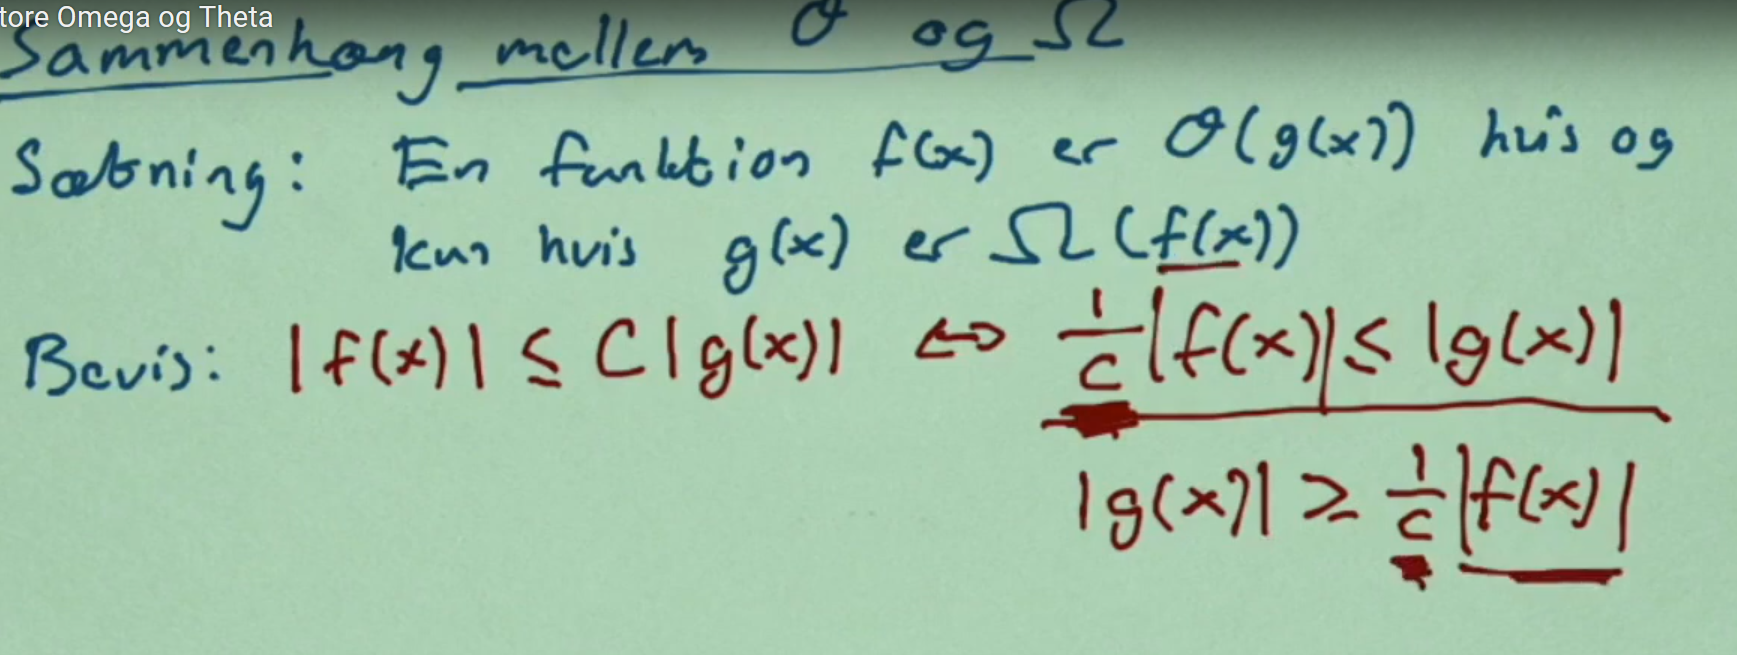 tore Omega og Theta
Sammenhæng mellem O og Ω
Sætning: En funktion f(x) er O(g(x)) hvis og
kun hvis g(x) er Ω(f(x))
Bevis: |f(x)| ≤ C|g(x)| ⇔ 1/C |f(x)| ≤ |g(x)|
|g(x)| ≥ 1/C |f(x)|